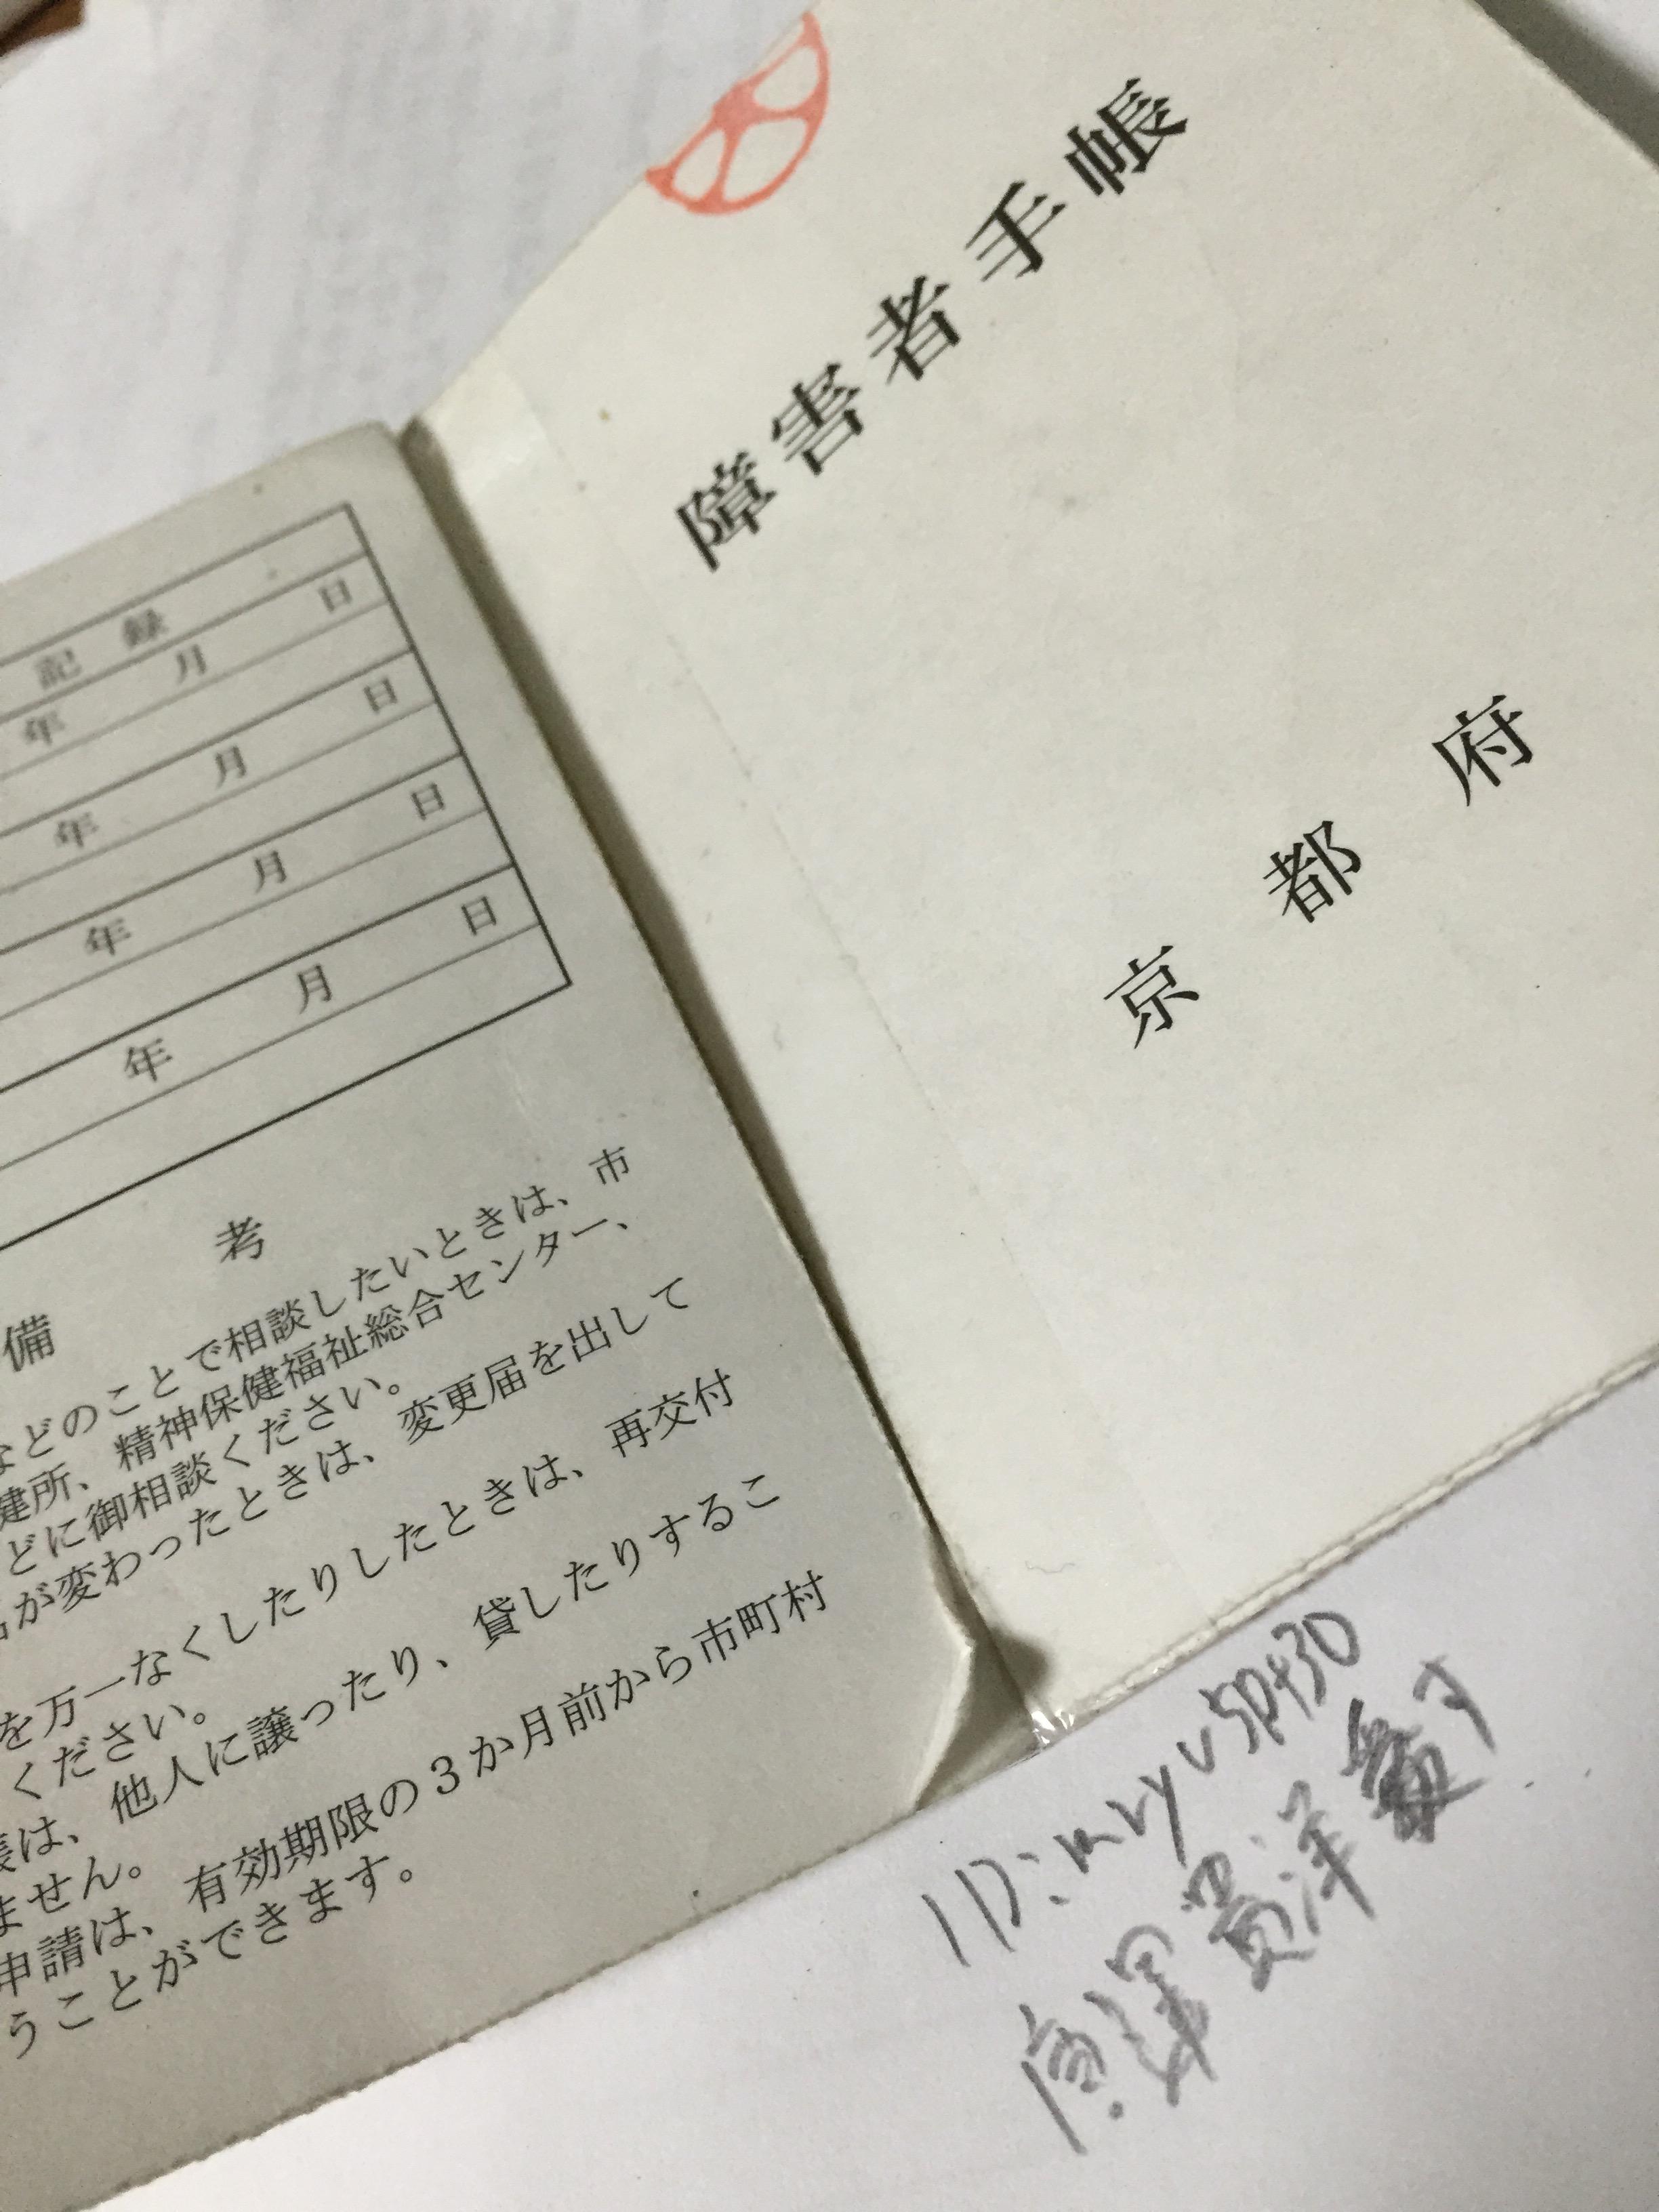 障害者手帳
京都府
記録
年 月 日
年 月 日
年 月 日
年 月 日
備 考
などのことで相談したいときは、市
健所、精神保健福祉総合センター、
どに御相談ください。
が変わったときは、変更届を出して
を万一なくしたりしたときは、再交付
ください。
は、他人に譲ったり、貸したりするこ
ません。
申請は、有効期限の3か月前から市町村
うことができます。
ID: